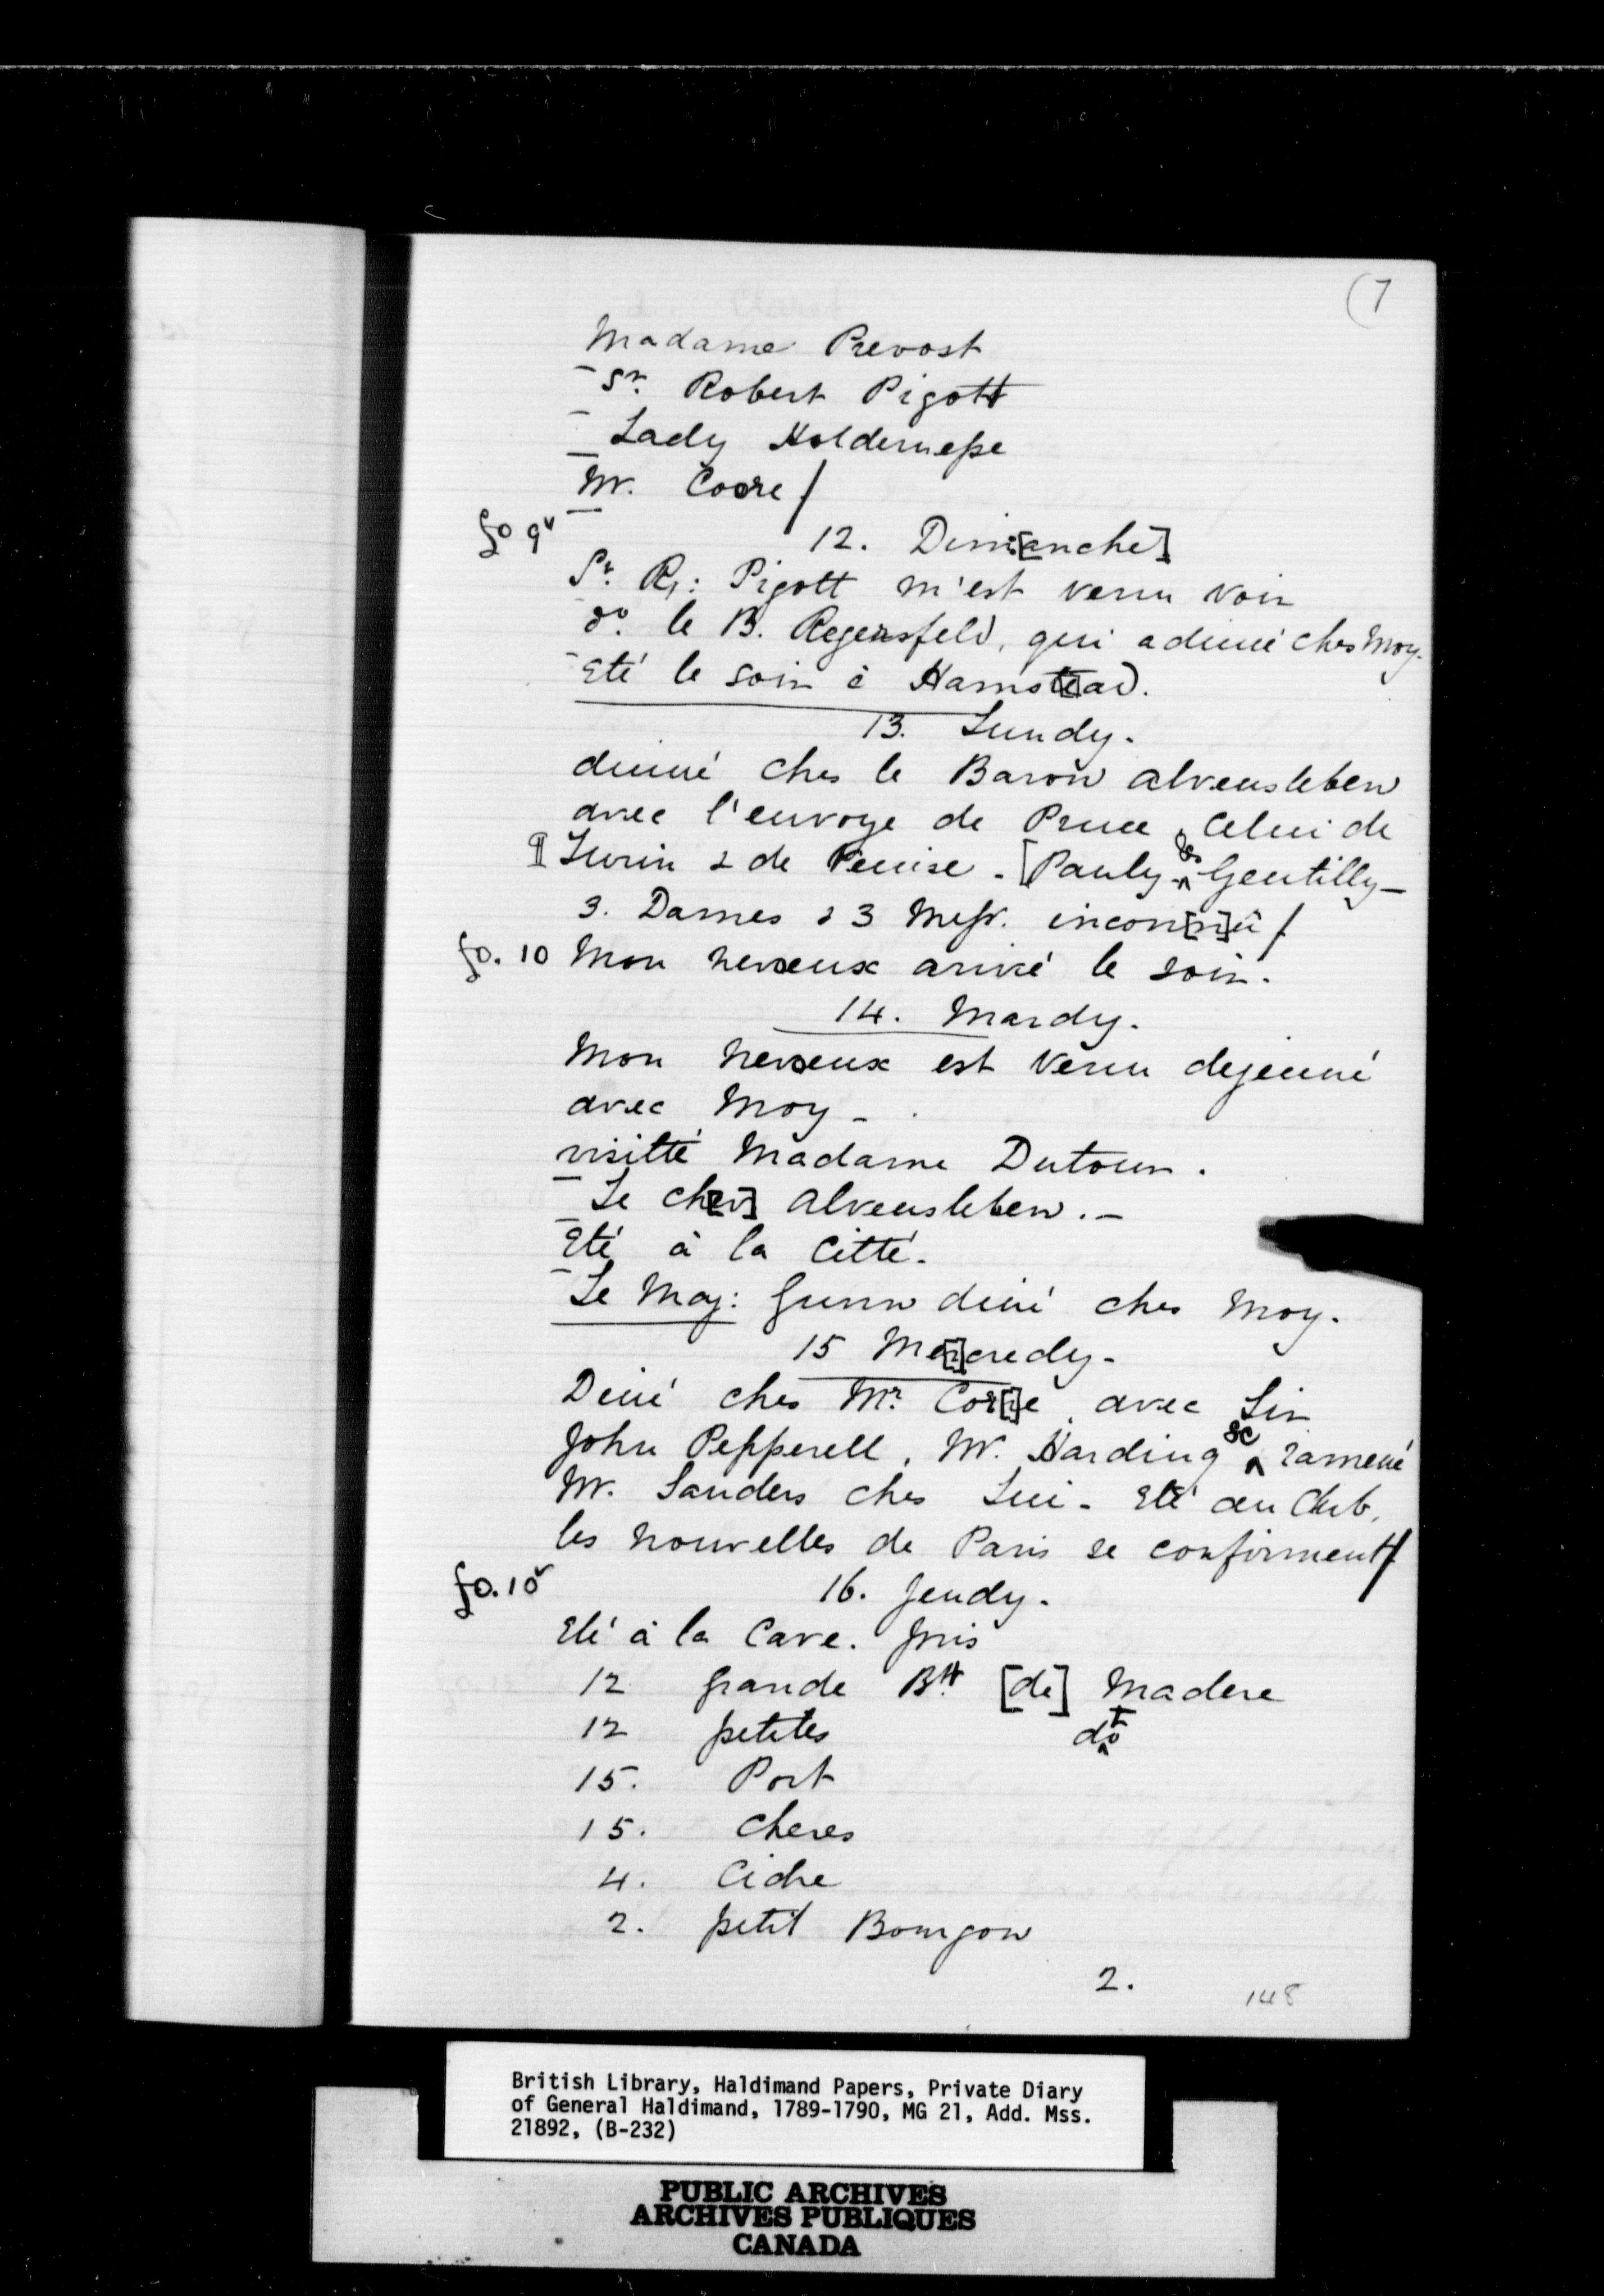 (7
Madame Prevost
- Sr. Robert Pigott
- Lady Holdernesse
- Mr. Coore /
fo 9v
12. Dim[anche]
Sr. R: Pigott m'est venu voir
do. le B. Regensfeld, qui a dinné ches Moy.
- Eté le soir à Hamst[e]ad.
13. Lundy.
dinné ches le Baron Alvensleben
avec l'envoye de Pruce, Celui de
Turin & de Venise. [Pauly - les Gentilly -
3. Dames & 3 Messr. incon[n]û /
fo. 10 Mon neveux arivé le soir.
14. Mardy.
Mon neveux est venu dejeuné
avec Moy -
visitté Madame Dutoun.
- Le che[v] Alvensleben. -
- Eté à la Citté.
- Le Maj: Gunn diné ches Moy.
15 Me[r]credy -
Diné ches Mr. Cor[r]e, avec Sir
John Pepperell, Mr. Harding & ramené
Mr. Sanders ches Lui - Eté au Club,
les nouvelles de Paris se confirment /
fo. 10v
16. Jeudy.
Eté à la Cave. pris
12 grande Btt. [de] Madere
12 petites do
15. Port
15. Cheres
4. Cidre
2. petit Bourgon
2.
148
British Library, Haldimand Papers, Private Diary
of General Haldimand, 1789-1790, MG 21, Add. Mss.
21892, (B-232)
PUBLIC ARCHIVES
ARCHIVES PUBLIQUES
CANADA